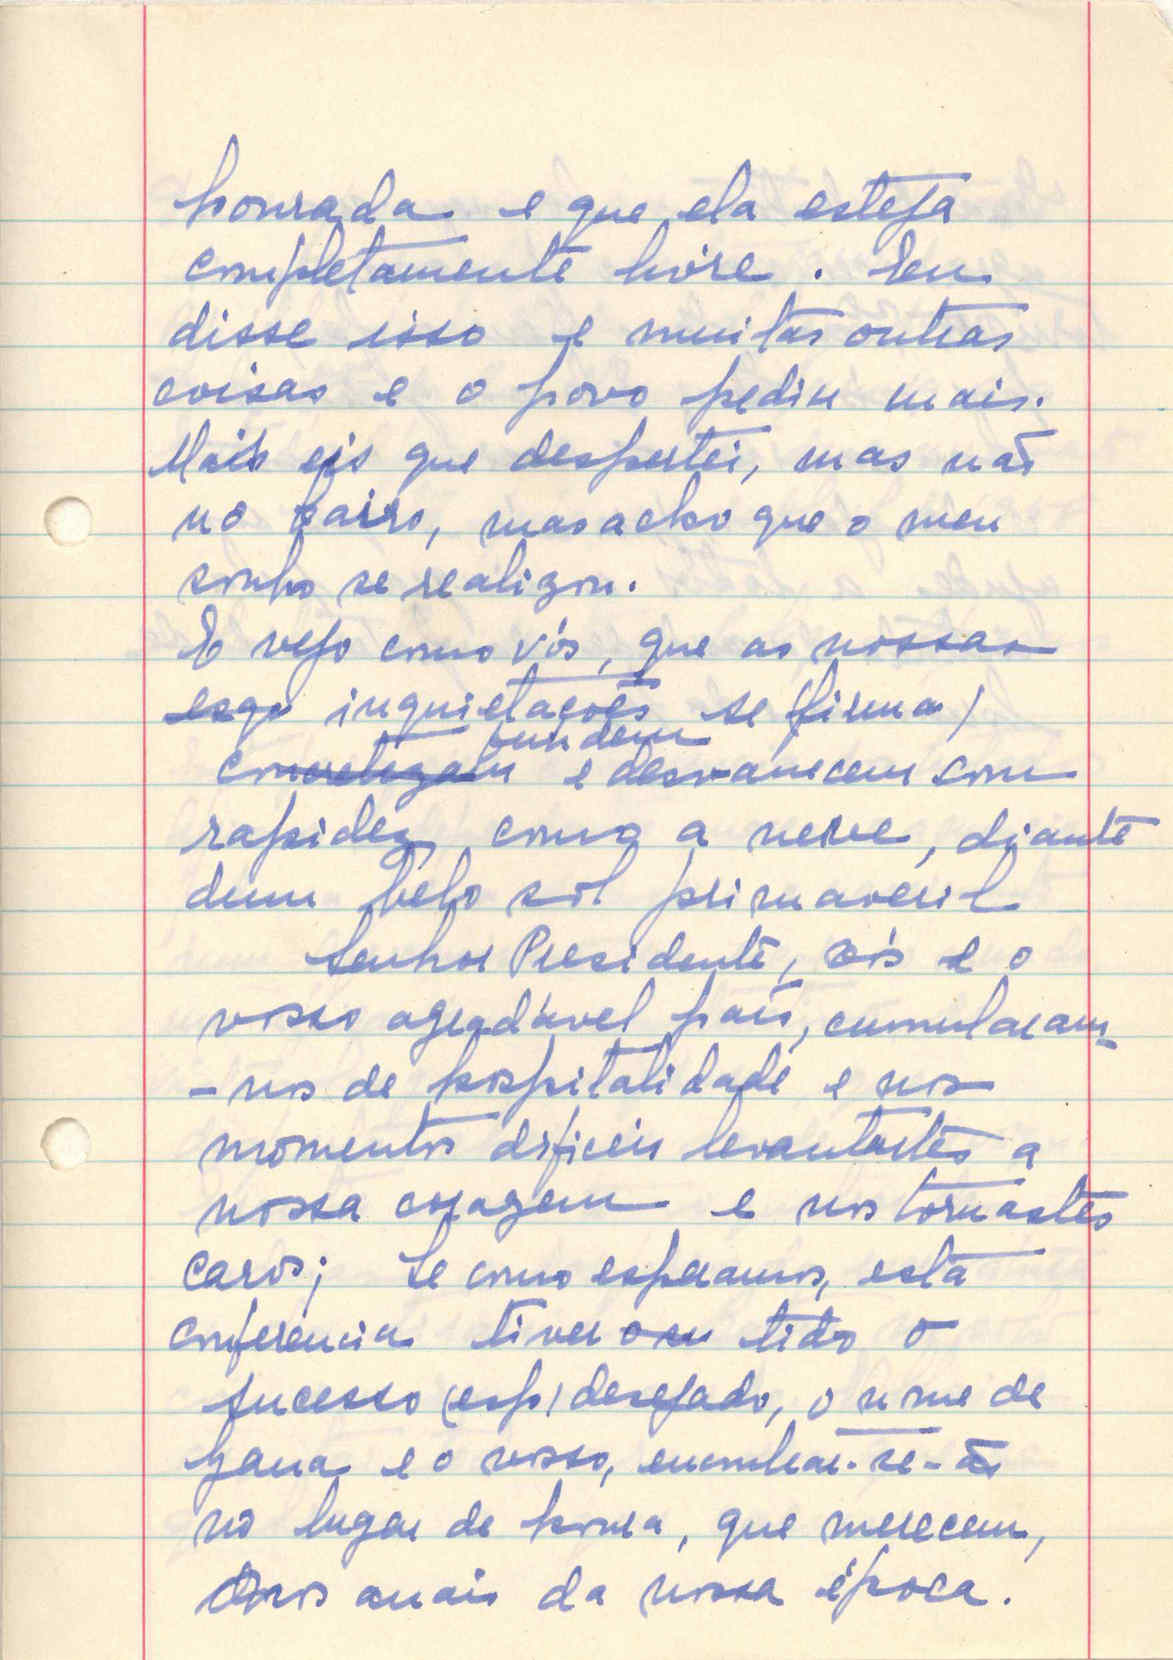 honrada e que ela esteja
completamente livre. Eu
disse isso e muitas outras
coisas e o povo pediu mais.
Mais eis que despertei, mas não
no Cairo, mas acho que o meu
sonho se realizou.
E vejo como vós, que as nossas
esqe inquietações se (firma)
fundem
concretizam e desvanecem com
rapidez, como a neve, diante
dum belo sol primaveril
Senhor Presidente, vós e o
vosso agradável país, cumularam-
-nos de hospitalidade e nos
momentos difíceis levantastes a
nossa coragem e nos tornastes
caros; Se como esperamos, esta
conferência tiver tido o
sucesso (esp) desejado, o nome de
Gana e o vosso, encontrar-se-ão
no lugar de honra, que merecem,
nos anais da nossa época.